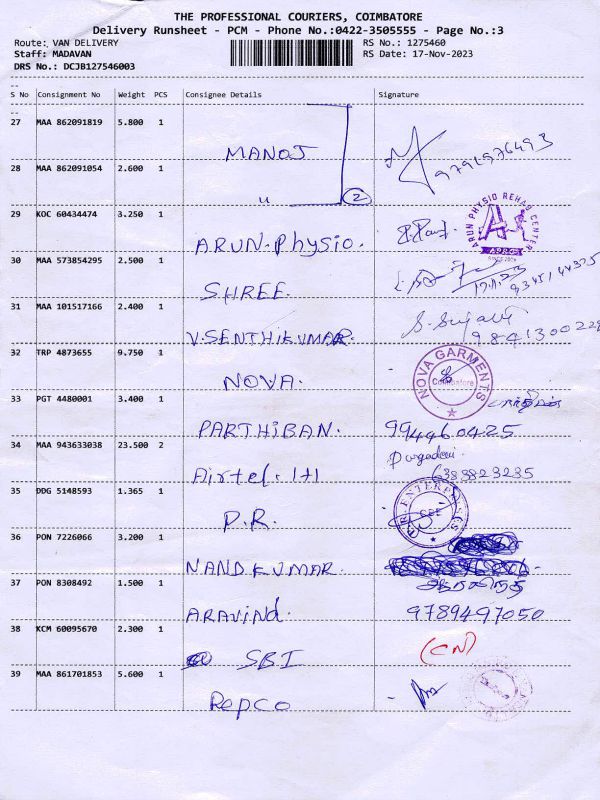 THE PROFESSIONAL COURIERS, COIMBATORE
Delivery Runsheet - PCM - Phone No.:0422-3505555 - Page No.:3
Route: VAN DELIVERY RS No.: 1275460
Staff: MADAVAN RS Date: 17-Nov-2023
DRS No.: DCJB127546003
S No Consignment No Weight PCS Consignee Details Signature
27 MAA 862091819 5.800 1 MANOJ 9791976493
28 MAA 862091054 2.600 1 " 2
29 KOC 60434474 3.250 1 ARUN. Physio. ARUN PHYSIO REHAB CENTER
30 MAA 573854295 2.500 1 SHREE. 17.11.23
31 MAA 101517166 2.400 1 V. SENTHIKUMAR
32 TRP 4873655 9.750 1 NOVA. NOVA GARMENTS Coimbatore
33 PGT 4480001 3.400 1 PARTHIBAN. 9944960425
34 MAA 943633038 23.500 2 Airtel. 6383823235
35 DDG 5148593 1.365 1 P.R.
36 PON 7226066 3.200 1 NANDKUMAR.
37 PON 8308492 1.500 1 ARAVind. 9789497050
38 KCM 60095670 2.300 1 SBI (CN)
39 MAA 861701853 5.600 1 Repco